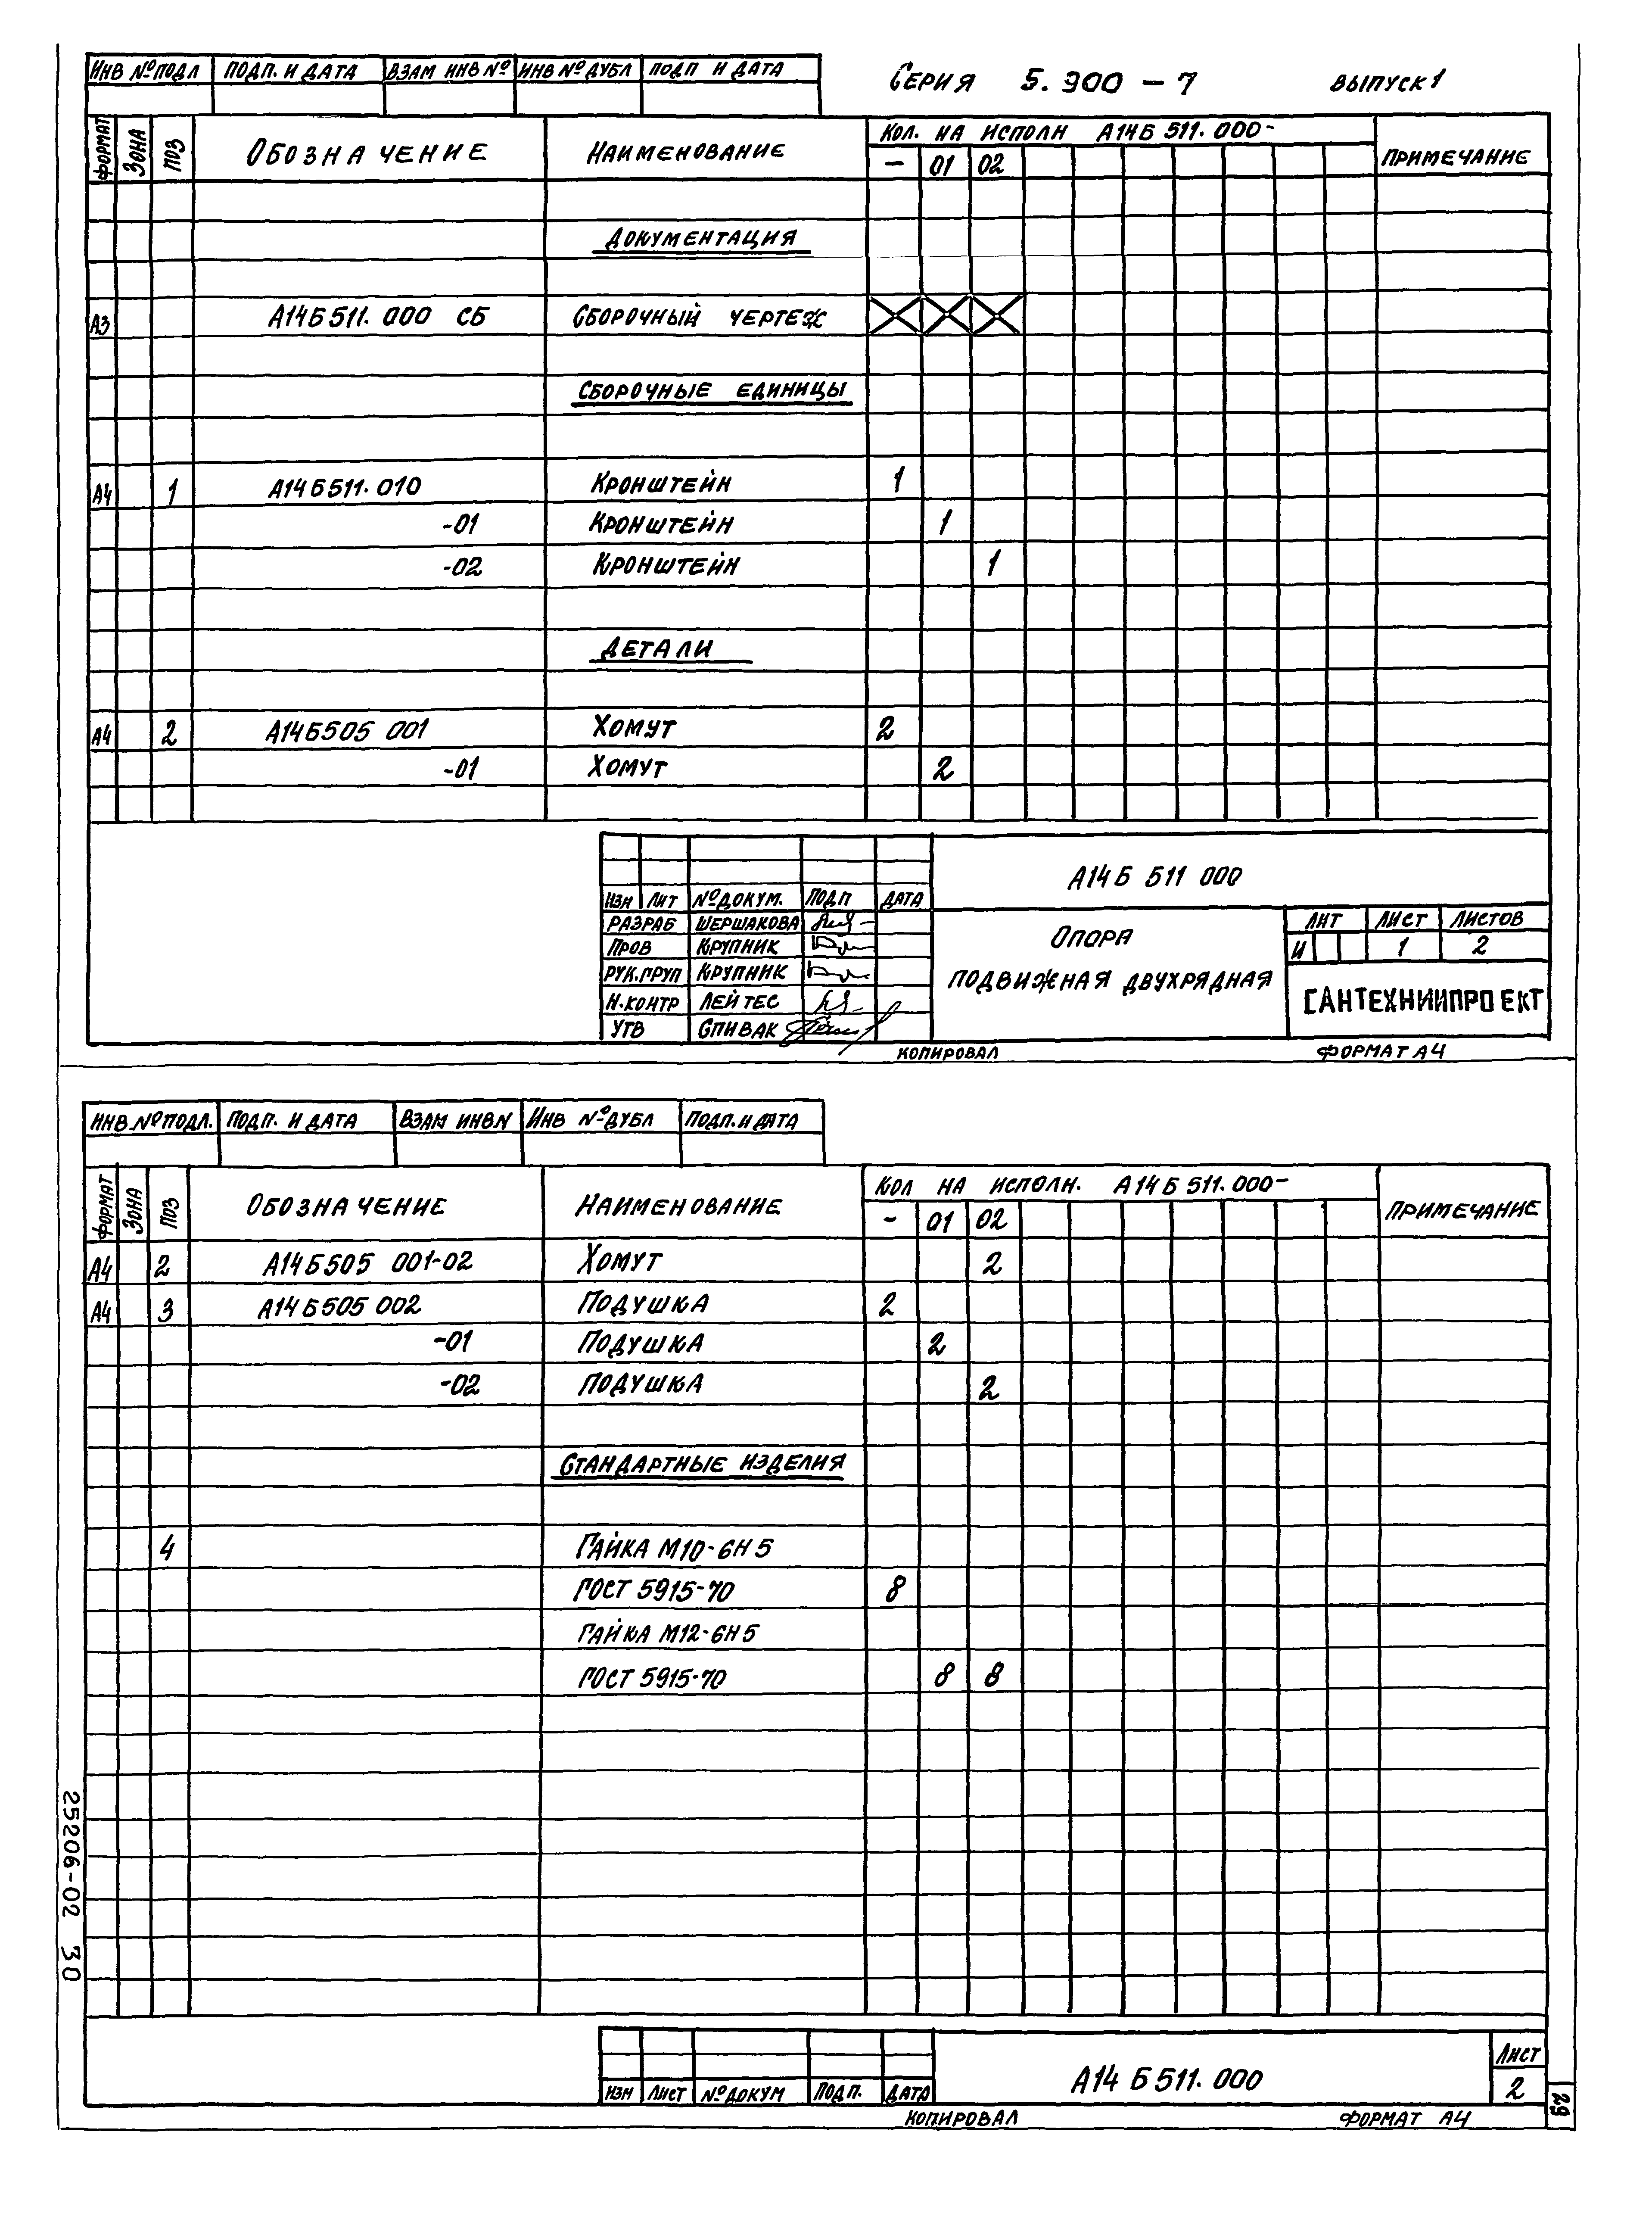 ИНВ №ПОДЛ ПОДП. И ДАТА ВЗАМ ИНВ № ИНВ № ДУБЛ ПОДП И ДАТА
СЕРИЯ 5.900-7 ВЫПУСК 1
ФОРМАТ ЗОНА ПОЗ ОБОЗНАЧЕНИЕ НАИМЕНОВАНИЕ КОЛ. НА ИСПОЛН А14Б 511.000- ПРИМЕЧАНИЕ
- 01 02
ДОКУМЕНТАЦИЯ
А3 А14Б511.000 СБ СБОРОЧНЫЙ ЧЕРТЕЖ
СБОРОЧНЫЕ ЕДИНИЦЫ
А4 1 А14Б511.010 КРОНШТЕЙН 1
-01 КРОНШТЕЙН 1
-02 КРОНШТЕЙН 1
ДЕТАЛИ
А4 2 А14Б505 001 ХОМУТ 2
-01 ХОМУТ 2
А14Б 511 000
ИЗМ ЛИТ №ДОКУМ. ПОДП ДАТА
РАЗРАБ ШЕРШАКОВА
ПРОВ КРУПНИК
РУК.ГРУП КРУПНИК
Н.КОНТР ЛЕЙТЕС
УТВ СПИВАК
ОПОРА
ПОДВИЖНАЯ ДВУХРЯДНАЯ
ЛИТ ЛИСТ ЛИСТОВ
И 1 2
САНТЕХНИИПРОЕКТ
КОПИРОВАЛ ФОРМАТ А4
ИНВ.№ПОДЛ. ПОДП. И ДАТА ВЗАМ ИНВ.N ИНВ №ДУБЛ ПОДП. И ДАТА
ФОРМАТ ЗОНА ПОЗ ОБОЗНАЧЕНИЕ НАИМЕНОВАНИЕ КОЛ НА ИСПОЛН. А14Б 511.000- ПРИМЕЧАНИЕ
- 01 02
А4 2 А14Б505 001-02 ХОМУТ 2
А4 3 А14Б505 002 ПОДУШКА 2
-01 ПОДУШКА 2
-02 ПОДУШКА 2
СТАНДАРТНЫЕ ИЗДЕЛИЯ
4 ГАЙКА М10-6Н5
ГОСТ 5915-70 8
ГАЙКА М12-6Н5
ГОСТ 5915-70 8 8
25206-02 30
ИЗМ ЛИСТ №ДОКУМ ПОДП. ДАТА
А14 Б511.000
ЛИСТ
2
29
КОПИРОВАЛ ФОРМАТ А4